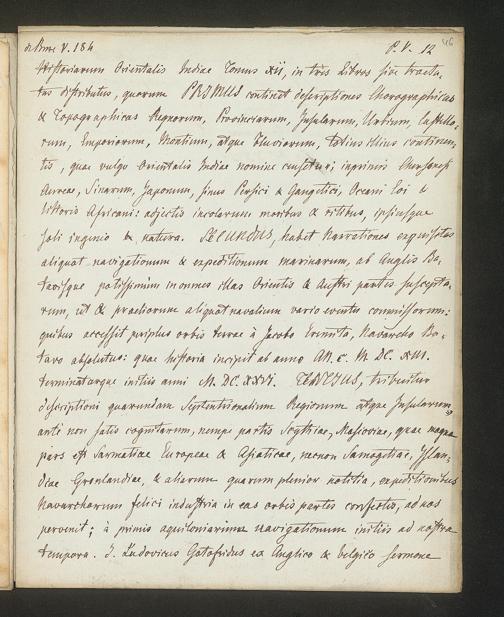 de Bure V. 184 P. V. 12 46
Historiarum Orientalis Indiae Tomus XII, in tres Libros sive tracta,
tus distributus, quorum PRIMUS continet descriptiones Chorographicas
& Topographicas Regnorum, Provinciarum, Insularum, Urbium, Castello,
rum, Emporiorum, Montium, atque Fluviorum, totius illius continen,
tis, quae vulgo Orientalis Indiae nomine censetur; inprimis Chersonesi
Aureae, Sinarum, Japonum, sinus Persici & Gangetici, Oceani Eoi &
littoris Africani: adjectis incolarum moribus & ritibus, ipsiusque
soli ingenio & natura. SECUNDUS, habet Narrationes exquisitas
aliquot navigationum & expeditionum marinarum, ab Anglis Ba,
tavisque potissimum in omnes illas Orientis & Austri partes suscepta,
rum, ut & praeliorum aliquot navalium vario eventu commissorum:
quibus accessit periplus orbis terrae à Jacobo Eremita, Navarcho Ba,
tavo absolutus: quae historia incipit ab anno M. DC. XIII.
terminaturque initiis anni M. DC. XXVI. TERTIUS, tribuitur
descriptioni quarundam Septentrionalium Regionum atque Insularum,
ante non satis cognitarum, nempe partis Scythiae, Moscoviae, quae magna
pars est Sarmatiae Europeae & Asiaticae, necnon Samogitiae, Yslan,
diae Groenlandiae, & aliarum quarum plenior notitia, expeditionibus
Navarcharum felici industria in eas orbis partes confectis, ad nos
pervenit; à primis aquiloniarium navigationum initiis ad nostra
tempora. J. Ludovicus Gotofridus ex Anglico & belgico sermone